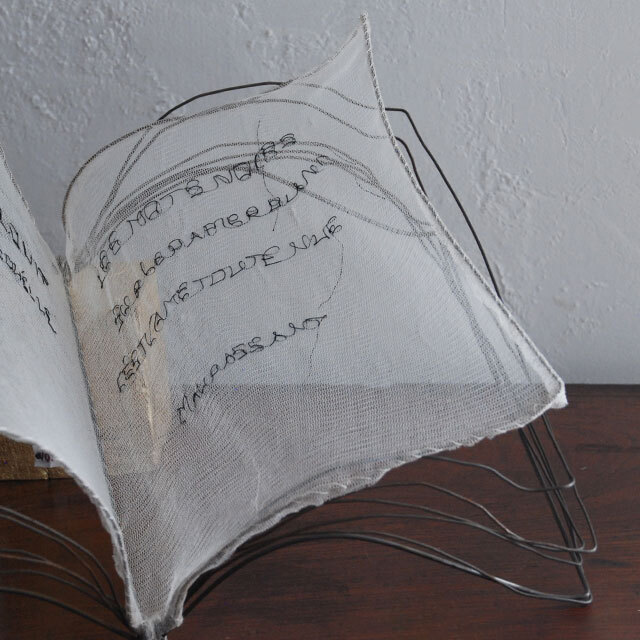 LES MOTS NOIRS
SUR LE PAPIER BLANC
C'EST L'AME TOUTE NUE
MAUPASSANT